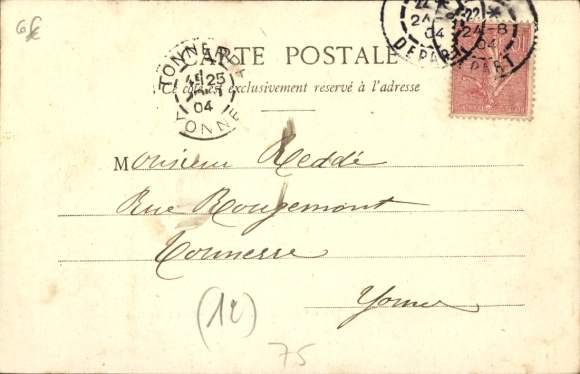 6€
CARTE POSTALE
Ce côté est exclusivement reservé à l'adresse
TONNERRE
25
04
YONNE
24-8
04
DEPART
24-8
04
DEPART
10
Monsieur Reddé
Rue Rougemont
Tonnerre
Yonne
(12)
75